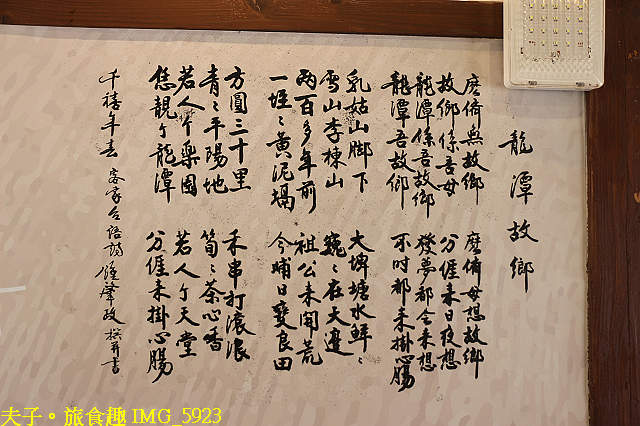 龍潭故鄉
麼儕無故鄉 麼儕毋想故鄉
故鄉係吾母 分𠊎来日夜想
龍潭係吾故鄉 發夢都会来想
龍潭吾故鄉 不时都来掛心腸
乳姑山脚下 大埤塘水鮮:
雪山李棟山 巍:在大邊
兩百多年前 祖公来開荒
一坵:黃泥塥 今晡日變良田
方圓三十里 禾串打滾浪
青:平陽地 筍:茶心香
若人个樂園 若人个天堂
恁靚个龍潭 分𠊎来掛心腸
千禧年春 客家台語詩 鍾肇政 撰并書
夫子。旅食趣 IMG_5923